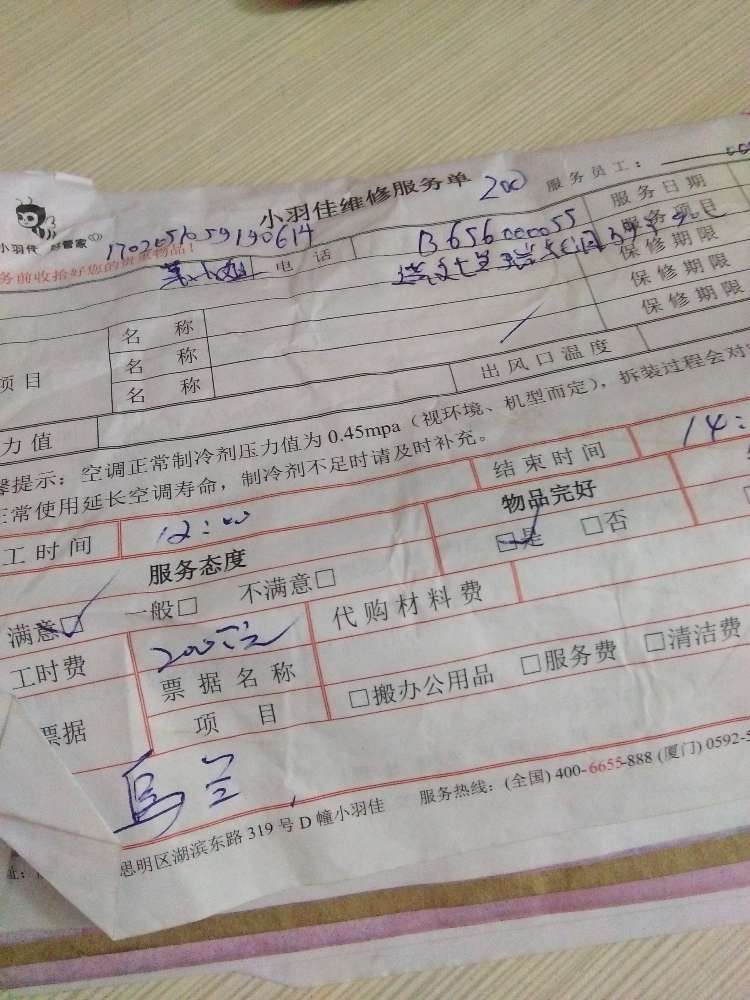 小羽佳维修服务单 200 服务员工：
小羽佳 好管家
1702051059190614
服务日期
务前收拾好您的贵重物品！
电话 13656000055 服务项目
保修期限
名称 保修期限
项目 名称 保修期限
名称 出风口温度
力值
馨提示：空调正常制冷剂压力值为 0.45mpa（视环境、机型而定），拆装过程会对
正常使用延长空调寿命，制冷剂不足时请及时补充。
工时间 12:00 结束时间 14:
服务态度 物品完好
满意☑ 一般□ 不满意□ ☑是 □否
工时费 200元 代购材料费
票据 票据名称
项目 □搬办公用品 □服务费 □清洁费
思明区湖滨东路 319 号 D 幢小羽佳 服务热线：(全国) 400-6655-888 (厦门) 0592-5